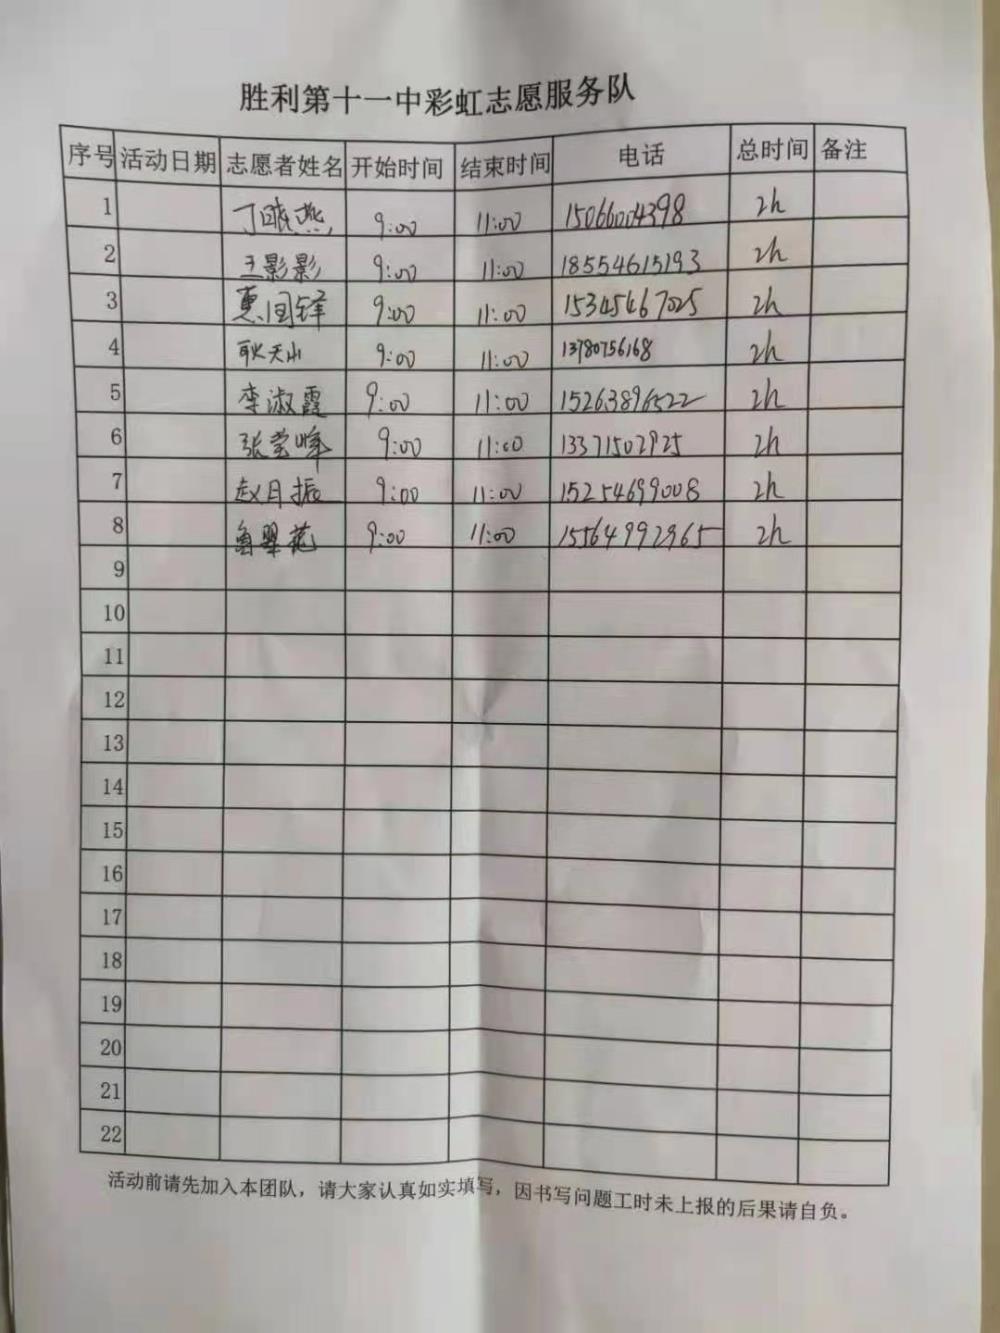 胜利第十一中彩虹志愿服务队
序号 活动日期 志愿者姓名 开始时间 结束时间 电话 总时间 备注
1 丁晓燕 9:00 11:00 15066004398 2h
2 王影影 9:00 11:00 18554615193 2h
3 惠国锋 9:00 11:00 15345467025 2h
4 耿天山 9:00 11:00 13780756168 2h
5 李淑霞 9:00 11:00 15263896522 2h
6 张莹峰 9:00 11:00 13371502925 2h
7 赵月振 9:00 11:00 15254699008 2h
8 鲁翠花 9:00 11:00 15564992965 2h
9
10
11
12
13
14
15
16
17
18
19
20
21
22
活动前请先加入本团队，请大家认真如实填写，因书写问题工时未上报的后果请自负。